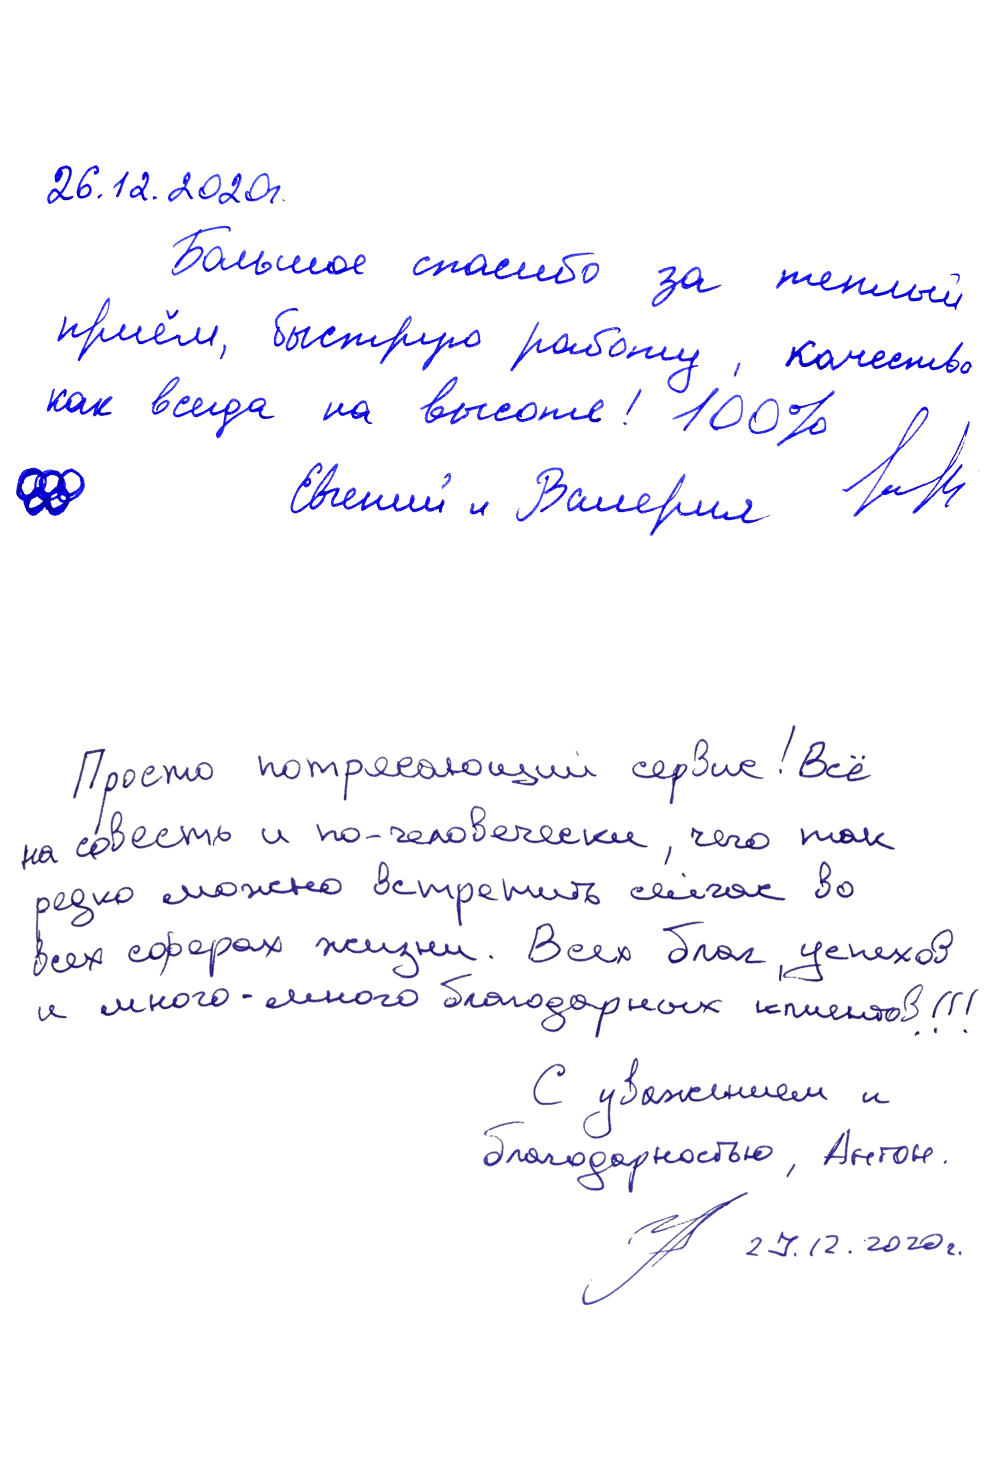 26.12.2020г.
Большое спасибо за теплый
приём, быструю работу, качество
как всегда на высоте! 100%
Евгений и Валерия
Просто потрясающий сервис! Всё
на совесть и по-человечески, чего так
редко можно встретить сейчас во
всех сферах жизни. Всех благ, успехов
и много-много благодарных клиентов!!!
С уважением и
благодарностью, Антон.
27.12.2020г.